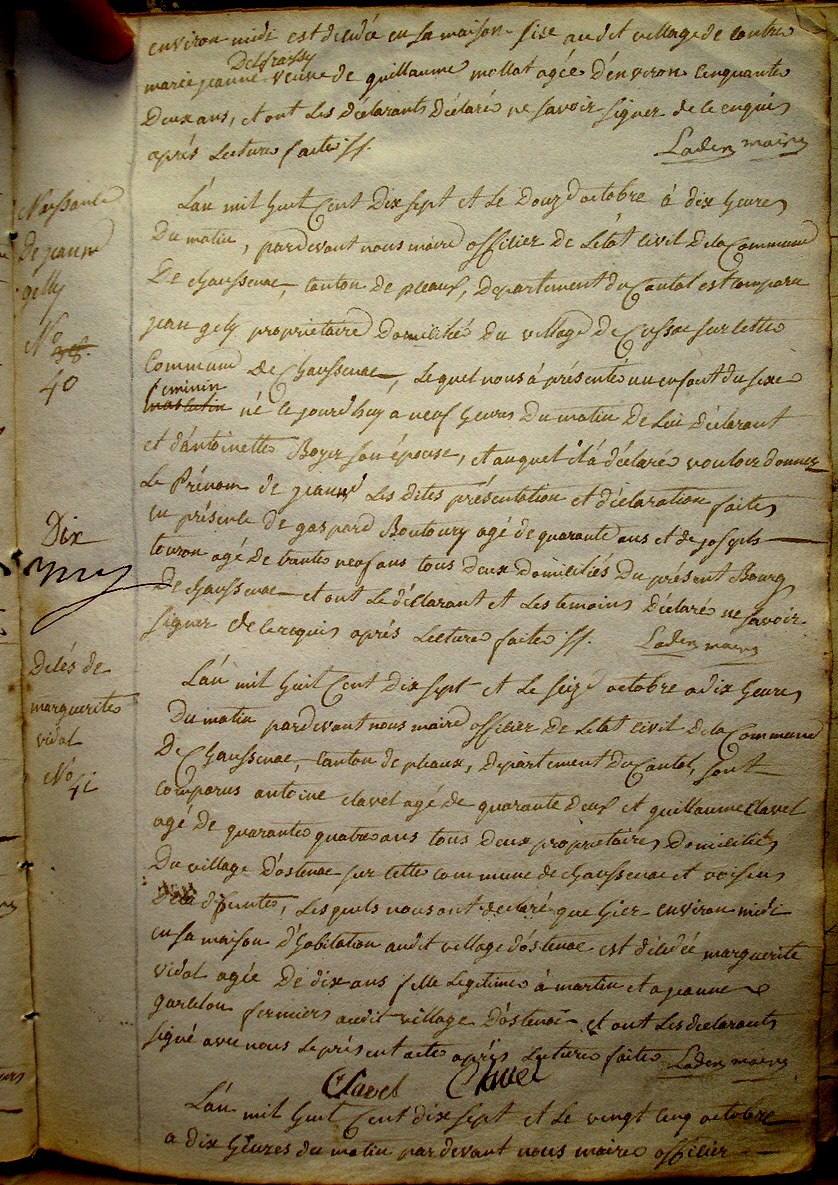 environ midi est décédée en sa maison sise audit village de contres
Delfrassy
marie jeanne veuve de guillaume mollat agée d'environ cinquante
Deux ans, et ont Les Déclarants Déclaré ne savoir signer de ce enquis
après Lecture faite ff.
Laden maire
Naissance
De jeanne
gelly
No 38.
40
L'an mil huit Cent Dix sept et Le Douze octobre à dix heures
Du matin, pardevant nous maire officier De Létat civil De la Commune
De chaussenac, canton de pleaux, Departement du Cantal est comparu
jean gely proprietaire Domicilié Du village De Cussac sur cette
Commune De Chaussenac, Lequel nous à présenté un enfant du sexe
feminin
masculin né ce jourd'huy a neuf heures Du matin De Lui Déclarant
et d'antoinette Boyer son épouse, et auquel il à déclaré vouloir donner
Le Prénom de jeanne Les dites présentation et déclaration faites
en présence De gaspard Boutoury agé de quarante ans et de joseph
touron agé de trente neuf ans tous Deux Domiciliés Du présent Bourg
De chaussenac et ont Le déclarant et Les temoins Déclaré ne savoir
signer de ce requis après Lecture faite ff. Laden maire
Dix
Décés de
marguerite
vidal
No
41
L'an mil huit Cent Dix sept et Le seize octobre a dix heures
Du matin pardevant nous maire officier De Létat civil De la Commune
De Chaussenac, canton de pleaux, Département du Cantal, sont
comparus antoine clavel agé de quarante deux et guillaume Clavel
agé de quarante quatre ans tous deux proprietaires Domiciliés
Du village D'ostenac sur cette commune de chaussenac et voisins
De la défunte, Lesquels nous ont declaré que hier environ midi
en sa maison d'habitation audit village d'ostenac est décédée marguerite
vidal agée De dix ans fille Legitime à martin et a jeanne
garcelon fermiers audit village D'ostenac et ont Les declarants
signé avec nous Le présent acte après Lecture faite Laden maire
Clavel Clavel
L'an mil huit Cent dix sept et Le vingt cinq octobre
a dix heures du matin pardevant nous maire officier